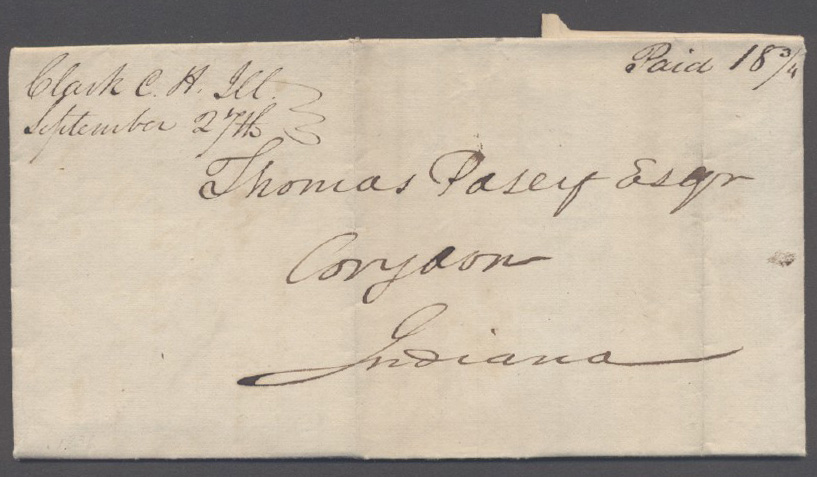 Clark C. H. Ill.
September 27th
Paid 18 3/4
Thomas Posey Esqr
Corydon
Indiana